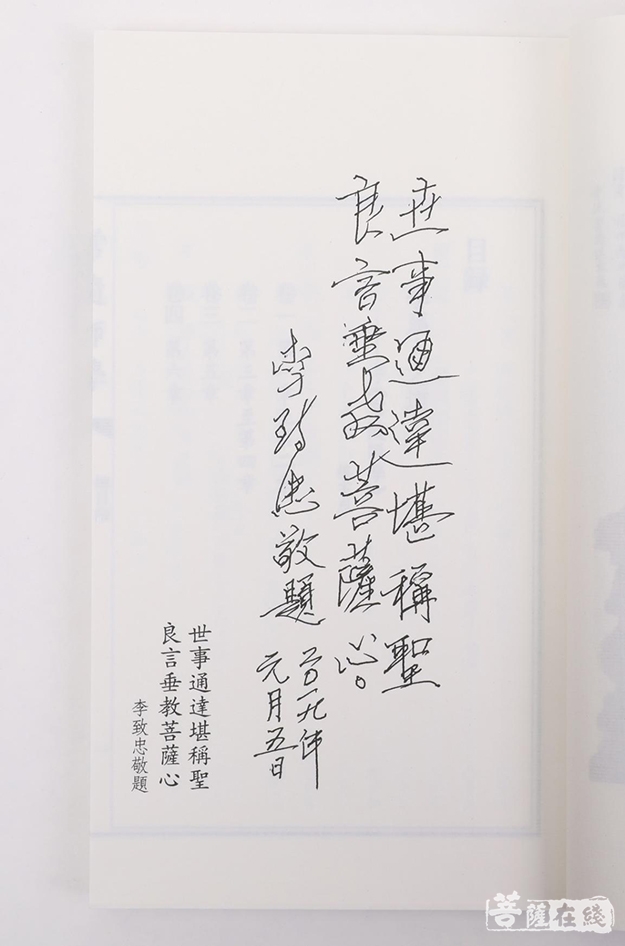 世事通達堪稱聖
良言垂教菩薩心。
李致忠敬題
二〇一九年
元月五日
世事通達堪稱聖
良言垂教菩薩心
李致忠敬題
目錄
菩薩在綫